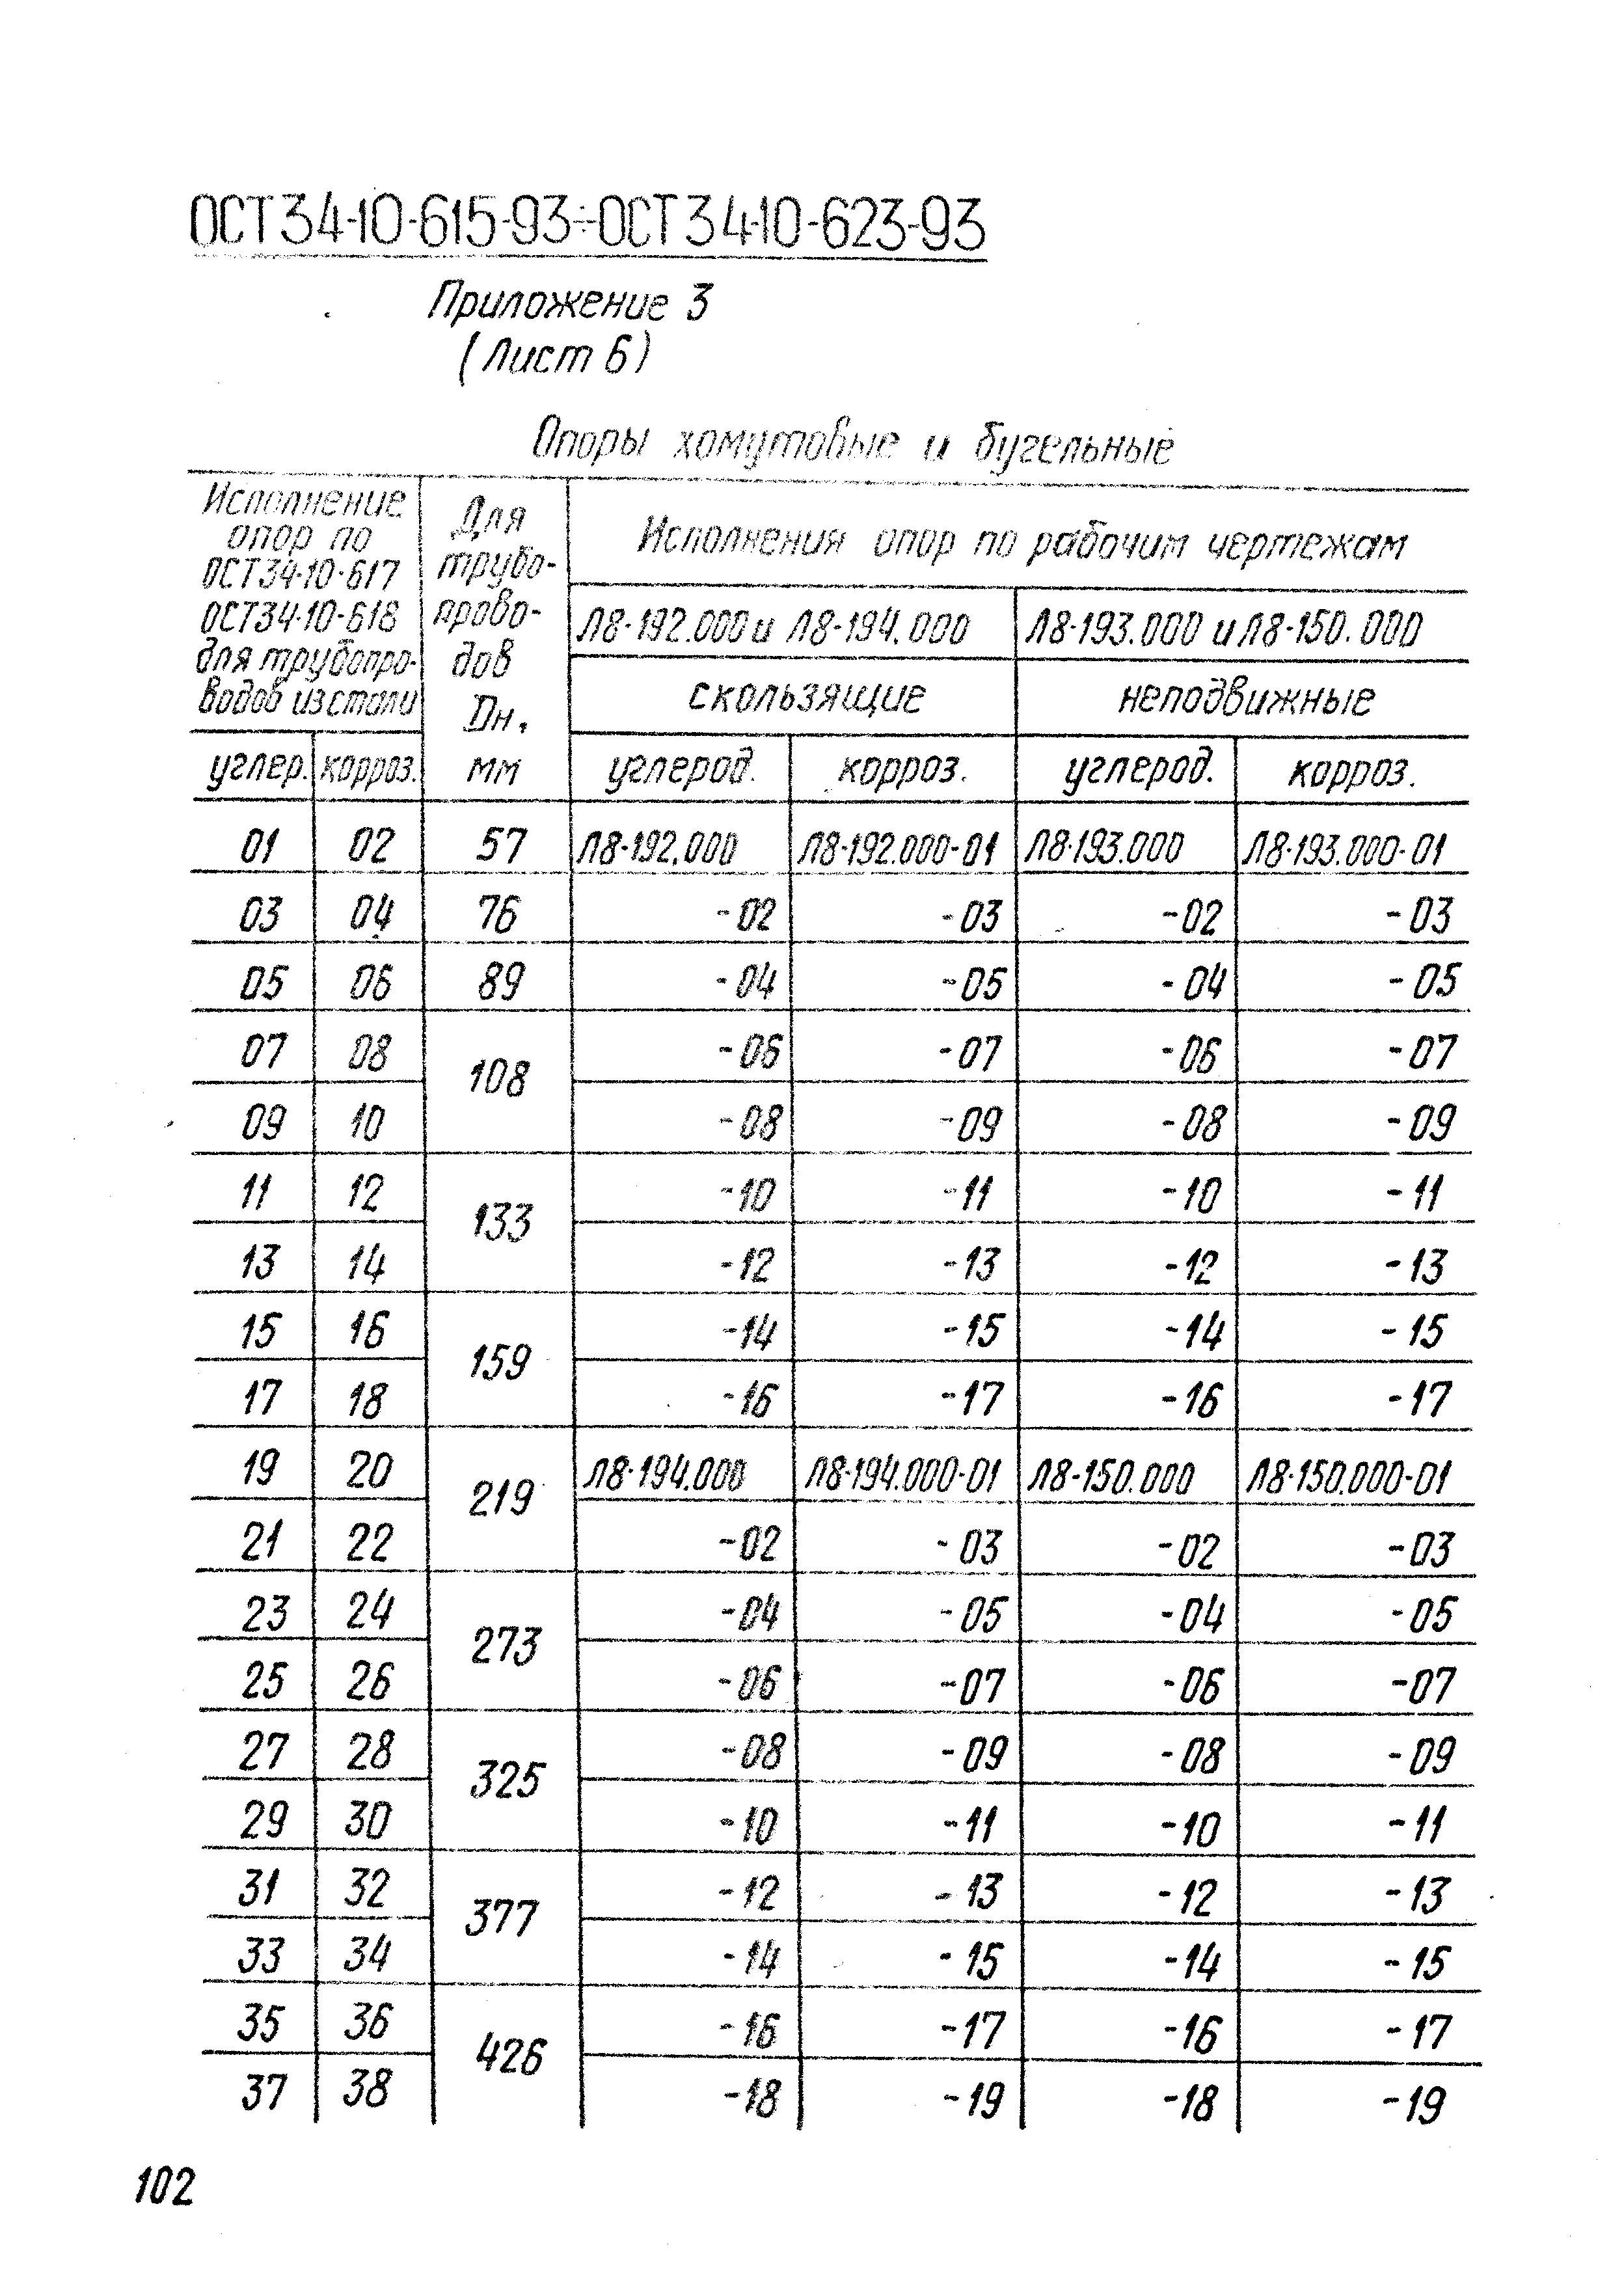 ОСТ 34-10-615-93÷ОСТ 34-10-623-93
Приложение 3
(Лист 6)
Опоры хомутовые и бугельные
Исполнение опор по ОСТ34-10-617 ОСТ34-10-618 для трубопро- водов из стали
Для трубо- прово- дов Dн, мм
Исполнения опор по рабочим чертежам
Л8-192.000 и Л8-194.000 Л8-193.000 и Л8-150.000
скользящие неподвижные
углер. корроз. углерод. корроз. углерод. корроз.
01 02 57 Л8-192.000 Л8-192.000-01 Л8-193.000 Л8-193.000-01
03 04 76 -02 -03 -02 -03
05 06 89 -04 -05 -04 -05
07 08 108 -06 -07 -06 -07
09 10 -08 -09 -08 -09
11 12 133 -10 -11 -10 -11
13 14 -12 -13 -12 -13
15 16 159 -14 -15 -14 -15
17 18 -16 -17 -16 -17
19 20 219 Л8-194.000 Л8-194.000-01 Л8-150.000 Л8-150.000-01
21 22 -02 -03 -02 -03
23 24 273 -04 -05 -04 -05
25 26 -06 -07 -06 -07
27 28 325 -08 -09 -08 -09
29 30 -10 -11 -10 -11
31 32 377 -12 -13 -12 -13
33 34 -14 -15 -14 -15
35 36 426 -16 -17 -16 -17
37 38 -18 -19 -18 -19
102